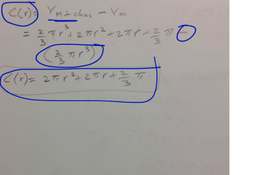 C(r) = V_M+choc − V_M
= 2/3 πr³ + 2πr² + 2πr + 2/3 π −
(2/3 πr³)
C(r) = 2πr² + 2πr + 2/3 π